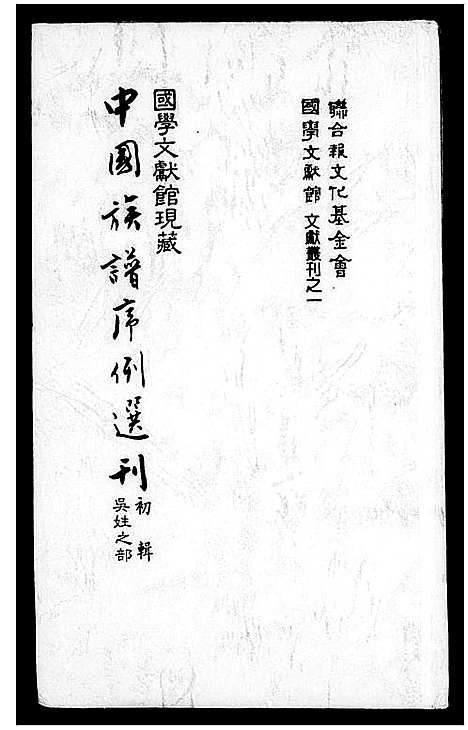 聯合報文化基金會
國學文獻館 文獻叢刊之一
國學文獻館現藏
中國族譜序例選刊
初輯
吳姓之部